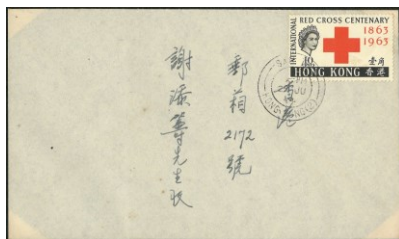 INTERNATIONAL RED CROSS CENTENARY
1863
1963
10
壹角
HONG KONG 香港
香港
郵箱2172號
謝添籌先生收